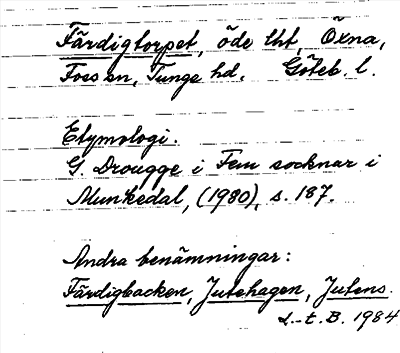 Färdigtorpet, öde lht, Öxna,
Foss sn, Tunge hd. Göteb. l.
Etymologi.
G. Drougge i Fem socknar i
Munkedal, (1980), s. 187.
Andra benämningar:
Färdigbacken, Jutehagen, Jutens.
L-t. B. 1984